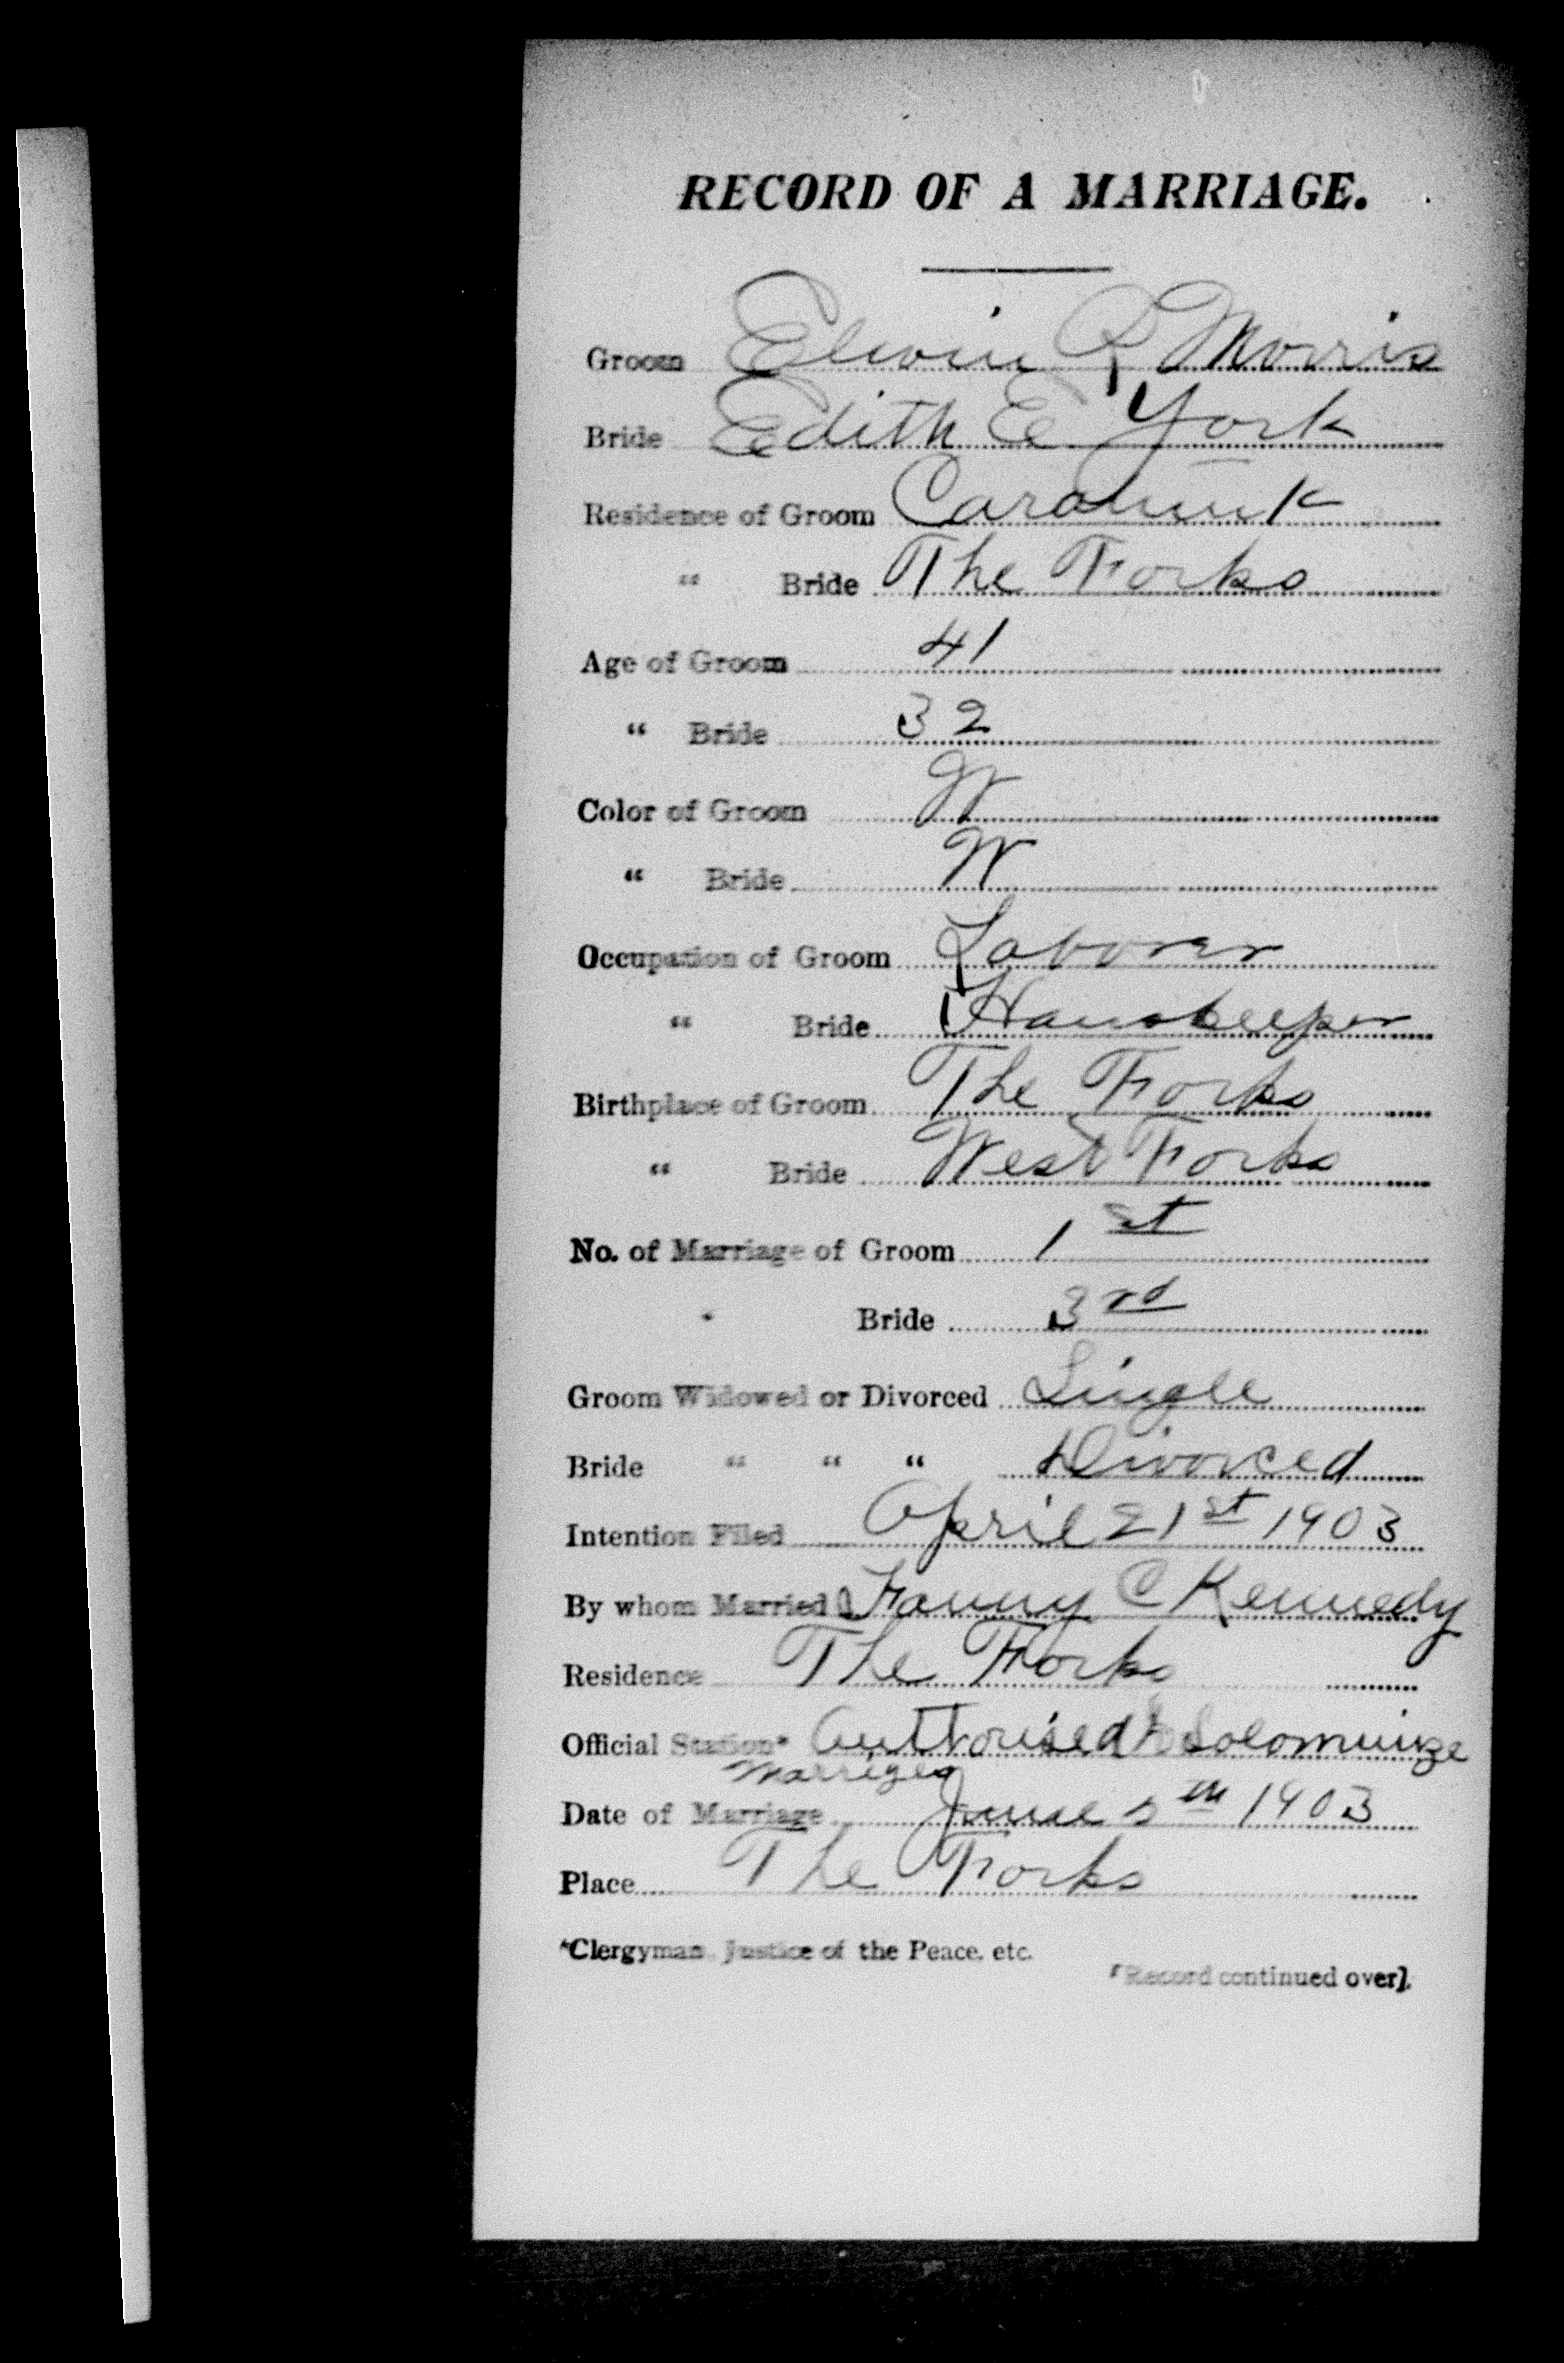 RECORD OF A MARRIAGE.
Groom Elwin R Morris
Bride Edith E York
Residence of Groom Caratunk
" Bride The Forks
Age of Groom 41
" Bride 32
Color of Groom W
" Bride W
Occupation of Groom Laborer
" Bride Housekeeper
Birthplace of Groom The Forks
" Bride West Forks
No. of Marriage of Groom 1st
" Bride 3rd
Groom Widowed or Divorced Single
Bride " " " Divorced
Intention Filed April 21st 1903
By whom Married Fanny C Kennedy
Residence The Forks
Official Station* Authorised to Solomnize
Marriges
Date of Marriage June 5th 1903
Place The Forks
*Clergyman, Justice of the Peace, etc.
[Record continued over].